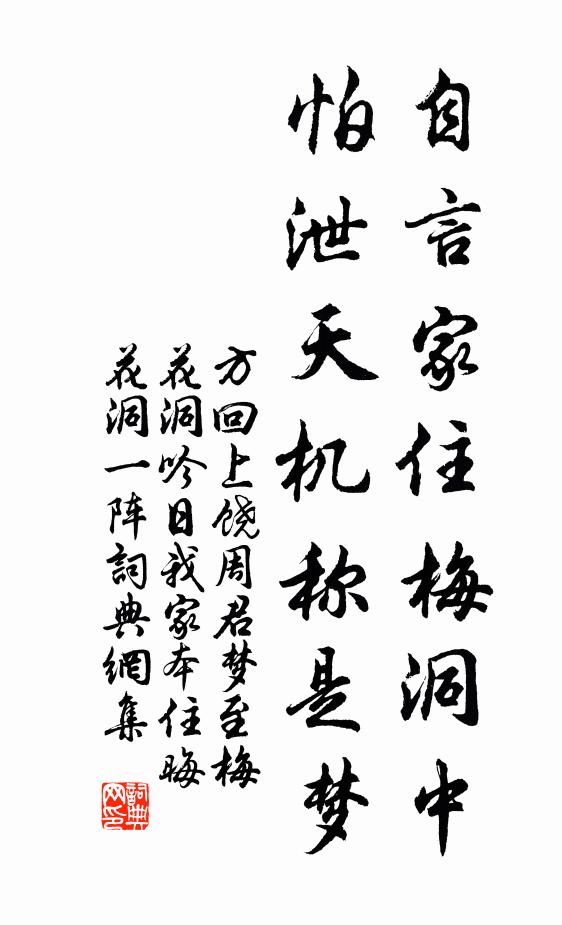 自言家住梅洞中
怕泄天机称是梦
方回上饶周君梦至梅
花洞吟日我家本住晦
花洞一阵詞典網集
詞典
网印